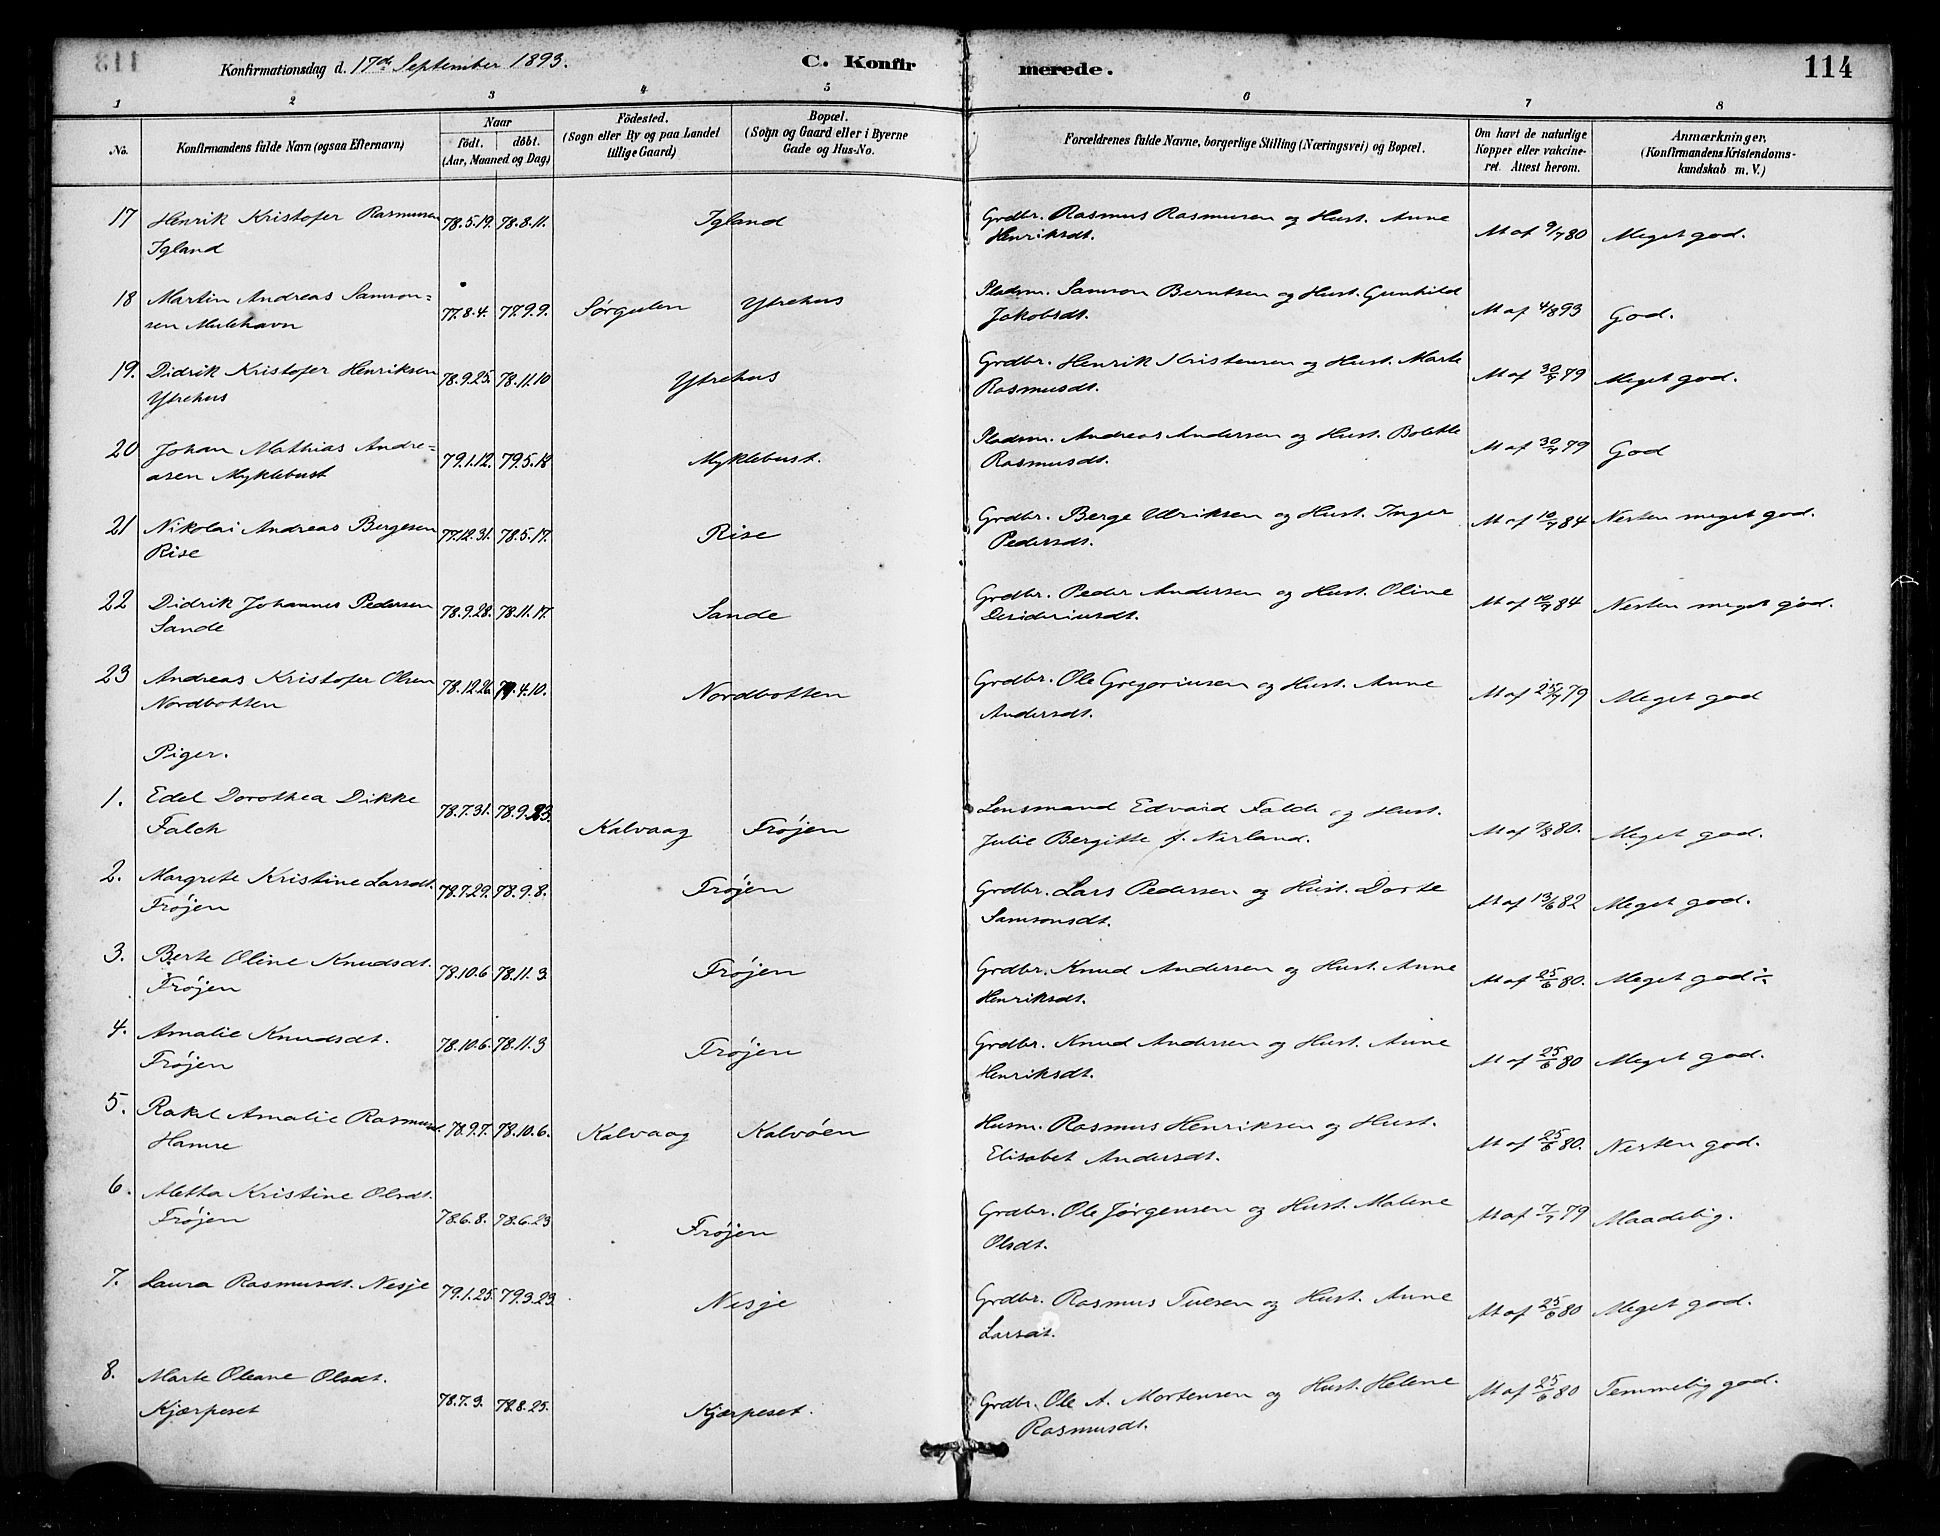 Konfirmationsdag d. 17de September 1893. C. Konfirmerede. 114
1 2 3 4 5 6 7 8
No. Konfirmandens fulde Navn (ogsaa Efternavn) Naar födt. döbt. (Aar, Maaned og Dag) Födested. (Sogn eller By og paa Landet tillige Gaard) Bopæl. (Sogn og Gaard eller i Byerne Gade og Hus-No. Forældrenes fulde Navne, borgerlige Stilling (Næringsvei) og Bopæl. Om havt de naturlige Kopper eller vakcineret. Attest herom. Anmærkninger, (Konfirmandens Kristendomskundskab m. V.)
17 Henrik Kristofer Rasmusen 78.5.19. 78.8.11. Igland Grdbr. Rasmus Rasmusen og Hust. Anne At af 9/7 80 Meget god.
Igland Henriksdt.
18 Martin Andreas Samson= 77.8.4. 77.9.9. Sørgulen Ytrehus Pladsm. Samson Berntsen og Hust. Gunhild At af 4/8 93 God.
sen Mulehavn Jakobsdt.
19. Didrik Kristofer Henriksen 78.9.25. 78.11.10 Ytrehus Grdbr. Henrik Kristensen og Hust. Marte At af 30/7 79 Meget god.
Ytrehus Rasmusdt.
20 Johan Mathias Andre= 79.1.12. 79.5.18 Myklebust. Pladsm. Andreas Andersen og Hust. Bolette At af 30/7 79 God
asen Myklebust Rasmusdt.
21 Nikolai Andreas Bergesen 77.12.31. 78.5.17. Rise Grdbr. Berge Ulriksen og Hust. Inger At af 10/7 84 Nesten meget god.
Rise Pedersdt.
22 Didrik Johannes Pedersen 78.9.28. 78.11.17. Sande Grdbr. Peder Andersen og Hust. Oline At af 10/7 84 Nesten meget god.
Sande Desideriusdt.
23 Andreas Kristofer Olsen 78.12.26. 79.4.10. Nordbotten Grdbr. Ole Gregoriusen og Hust. Anne At af 25/7 79 Meget god
Nordbotten Andersdt.
Piger.
1. Edel Dorothea Dikke 78.7.31. 78.9.23. Kalvaag Frøjen Lensmand Edvard Falch og Hust. At af 7/8 80. Meget god.
Falch Julie Bergitte f. Nerland.
2. Margrete Kristine Larsdt. 78.7.29. 78.9.8. Frøjen Grdbr. Lars Pedersen og Hust. Dorte At af 13/6 82 Meget god.
Frøjen Samsonsdt.
3. Berte Oline Knudsdt. 78.10.6 78.11.3. Frøjen Grdbr. Knud Andersen og Hust. Anne At af 25/6 80. Meget god ÷
Frøjen Henriksdt.
4. Amalie Knudsdt. 78.10.6. 78.11.3 Frøjen Grdbr. Knud Andersen og Hust. Anne At af 25/6 80 Meget god.
Frøjen Henriksdt.
5. Rakel Amalie Rasmusdt. 78.9.7. 78.10.6. Kalvaag Kalvøen Husm. Rasmus Henriksen og Hust. At af 25/6 80. Nesten god.
Hamre Elisabet Andersdt.
6. Metta Kristine Olsdt. 78.6.8. 78.6.23 Frøjen Grdbr. Ole Jørgensen og Hust. Malene At af 7/7 79 Maadelig.
Frøjen Olsdt.
7. Laura Rasmusdt. Nesje 79.1.25. 79.3.23. Nesje Grdbr. Rasmus Tuesen og Hust. Anne At af 25/6 80 Meget god.
Larsdt.
8. Marte Oleane Olsdt. 78.7.3. 78.8.25. Kjærpeset. Grdbr. Ole A. Mortensen og Hust. Helene At af 25/6 80 Temmelig god.
Kjærpeset Rasmusdt.